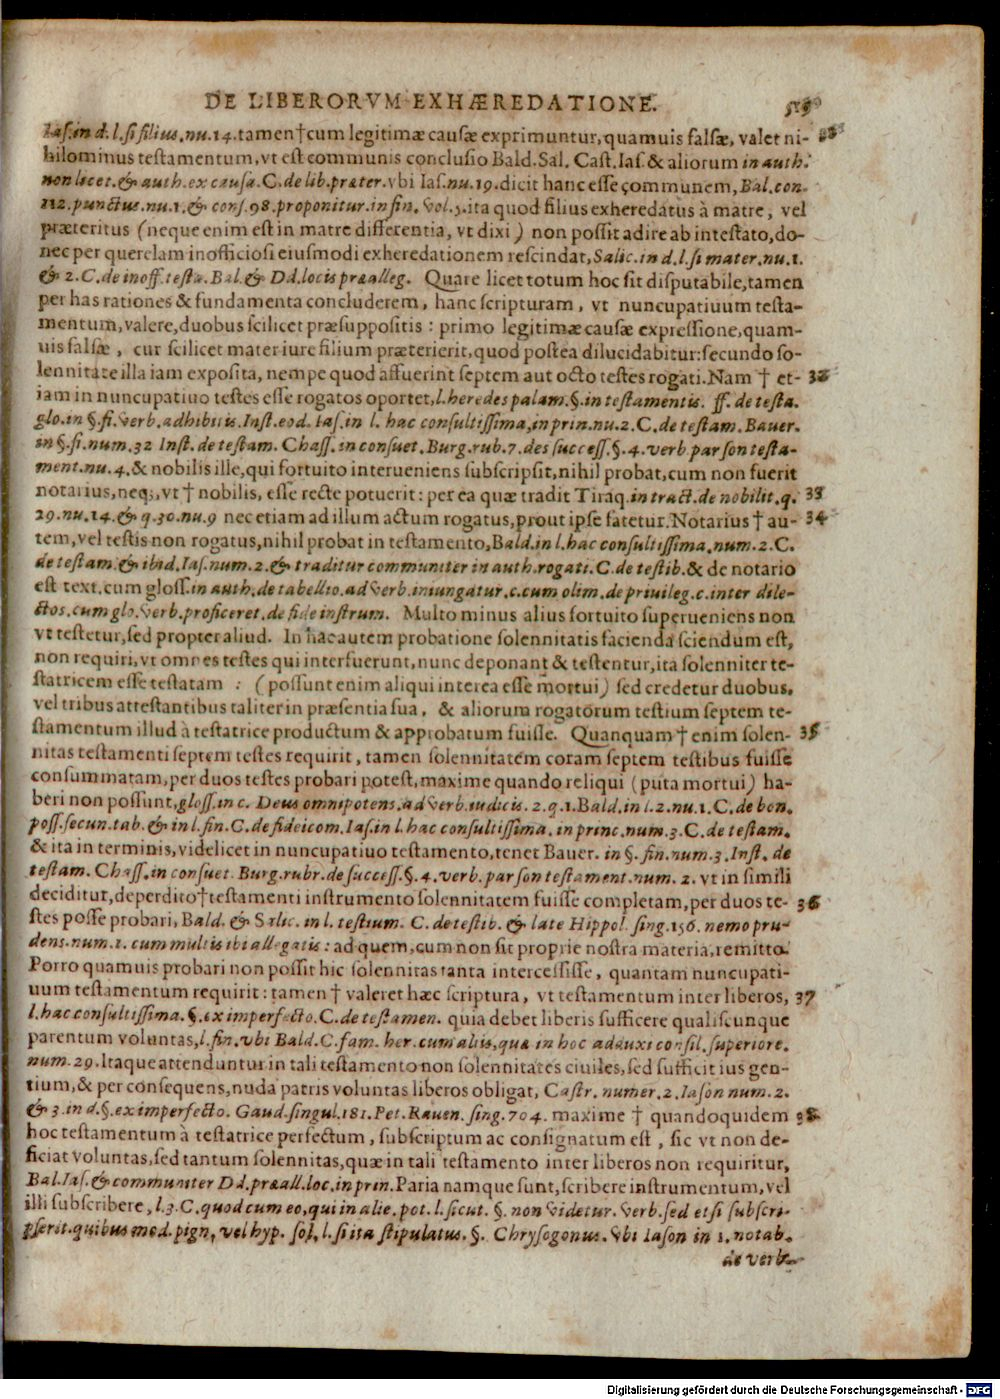 DE LIBERORVM EXHÆREDATIONE. 519
Iaſ. in d. l. ſi filius. nu. 14. tamen † cum legitimæ cauſæ exprimuntur, quamuis falſæ, valet ni-
hilominus teſtamentum, vt eſt communis concluſio Bald. Sal. Caſt. Iaſ. & aliorum in auth.
non licet. & auth. ex cauſa. C. de lib. præter. vbi Iaſ. nu. 19. dicit hanc eſſe communem, Bal. con.
112. punctus. nu. 1. & conſ. 98. proponitur. in fin. vol. 5. ita quod filius exheredatus à matre, vel
præteritus (neque enim eſt in matre differentia, vt dixi) non poſſit adire ab inteſtato, do-
nec per querelam inofficioſi eiuſmodi exheredationem reſcindat, Salic. in d. l. ſi mater. nu. 1.
& 2. C. de inoff. teſta. Bal. & Dd. locis præalleg. Quare licet totum hoc ſit diſputabile, tamen
per has rationes & fundamenta concluderem, hanc ſcripturam, vt nuncupatiuum teſta-
mentum, valere, duobus ſcilicet præſuppoſitis: primo legitimæ cauſæ expreſſione, quam-
uis falſæ, cur ſcilicet mater iure filium præterierit, quod poſtea dilucidabitur: ſecundo ſo-
lennitate illa iam expoſita, nempe quod affuerint ſeptem aut octo teſtes rogati. Nam † et-
iam in nuncupatiuo teſtes eſſe rogatos oportet, l. heredes palam. §. in teſtamentis. ff. de teſta.
glo. in §. fi. verb. adhibitis. Inſt. eod. Iaſ. in l. hac conſultiſſima, in prin. nu. 2. C. de teſtam. Bauer.
in §. fi. num. 32 Inſt. de teſtam. Chaſſ. in conſuet. Burg. rub. 7. des ſucceſſ. §. 4. verb. par ſon teſta-
ment. nu. 4. & nobilis ille, qui fortuito interueniens ſubſcripſit, nihil probat, cum non fuerit
notarius, neq;, vt † nobilis, eſſe recte potuerit: per ea quæ tradit Tiraq. in tract. de nobilit. q. 33
29. nu. 14. & q. 30. nu. 9 nec etiam ad illum actum rogatus, prout ipſe fatetur. Notarius † au- 34
tem, vel teſtis non rogatus, nihil probat in teſtamento, Bald. in l. hac conſultiſſima. num. 2. C.
de teſtam. & ibid. Iaſ. num. 2. & traditur communiter in auth. rogati. C. de teſtib. & de notario
eſt text. cum gloſſ. in auth. de tabellio. ad verb. iniungatur. c. cum olim. de priuileg. c. inter dile-
ctos. cum glo. verb. proficeret. de fide inſtrum. Multo minus alius fortuito ſuperueniens non
vt teſtetur, ſed propter aliud. In hac autem probatione ſolennitatis facienda ſciendum eſt,
non requiri, vt omnes teſtes qui interfuerunt, nunc deponant & teſtentur, ita ſolenniter te-
ſtatricem eſſe teſtatam: (poſſunt enim aliqui interea eſſe mortui) ſed credetur duobus,
vel tribus atteſtantibus taliter in præſentia ſua, & aliorum rogatorum teſtium ſeptem te-
ſtamentum illud à teſtatrice productum & approbatum fuiſſe. Quanquam † enim ſolen- 35
nitas teſtamenti ſeptem teſtes requirit, tamen ſolennitatem coram ſeptem teſtibus fuiſſe
conſummatam, per duos teſtes probari poteſt, maxime quando reliqui (puta mortui) ha-
beri non poſſunt, gloſſ. in c. Deus omnipotens. ad verb. iudicis. 2. q. 1. Bald. in l. 2. nu. 1. C. de bon.
poſſ. ſecun. tab. & in l. fin. C. de fideicom. Iaſ. in l. hac conſultiſſima. in princ. num. 3. C. de teſtam.
& ita in terminis, videlicet in nuncupatiuo teſtamento, tenet Bauer. in §. fin. num. 3. Inſt. de
teſtam. Chaſſ. in conſuet. Burg. rubr. de ſucceſſ. §. 4. verb. par ſon teſtament. num. 2. vt in ſimili
deciditur, deperdito † teſtamenti inſtrumento ſolennitatem fuiſſe completam, per duos te- 36
ſtes poſſe probari, Bald. & Salic. in l. teſtium. C. de teſtib. & late Hippol. ſing. 156. nemo pru-
dens. num. 1. cum multis ibi allegatis: ad quem, cum non ſit proprie noſtra materia, remitto.
Porro quamuis probari non poſſit hic ſolennitas tanta interceſſiſſe, quantam nuncupati-
uum teſtamentum requirit: tamen † valeret hæc ſcriptura, vt teſtamentum inter liberos, 37
l. hac conſultiſſima. §. ex imperfecto. C. de teſtamen. quia debet liberis ſufficere qualiſcunque
parentum voluntas, l. fin. vbi Bald. C. fam. her. cum aliis, quæ in hoc adduxi conſil. ſuperiore.
num. 29. Itaque attenduntur in tali teſtamento non ſolennitates ciuiles, ſed ſufficit ius gen-
tium, & per conſequens, nuda patris voluntas liberos obligat, Caſtr. numer. 2. Iaſon num. 2.
& 3. in d. §. ex imperfecto. Gaud. ſingul. 181. Pet. Rauen. ſing. 704. maxime † quandoquidem 38
hoc teſtamentum à teſtatrice perfectum, ſubſcriptum ac conſignatum eſt, ſic vt non de-
ficiat voluntas, ſed tantum ſolennitas, quæ in tali teſtamento inter liberos non requiritur,
Bal. Iaſ. & communiter Dd. præall. loc. in prin. Paria namque ſunt, ſcribere inſtrumentum, vel
illi ſubſcribere, l. 3. C. quod cum eo, qui in alie. pot. l. ſicut. §. non videtur. verb. ſed etſi ſubſcri-
pſerit. quibus mod. pign. vel hyp. ſol. l. ſi ita ſtipulatus. §. Chryſogonus. vbi Iaſon in 1. notab.
de verb.
Digitalisierung gefördert durch die Deutsche Forschungsgemeinschaft - DFG